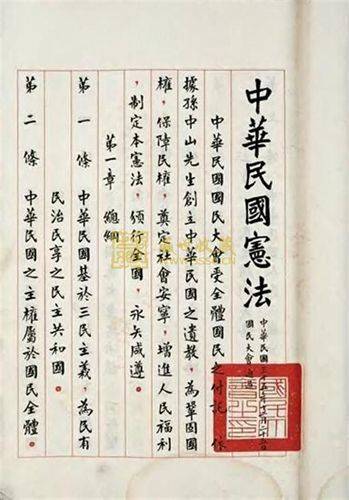 中華民國憲法
中華民國三十五年十二月二十五日
國民大會通過
中華民國國民大會受全體國民之付託,依
據孫中山先生創立中華民國之遺教,為鞏固國
權,保障民權,奠定社會安寧,增進人民福利
,制定本憲法,頒行全國,永矢咸遵。
第一章 總綱
第一條 中華民國基於三民主義,為民有
民治民享之民主共和國。
第二條 中華民國之主權屬於國民全體。